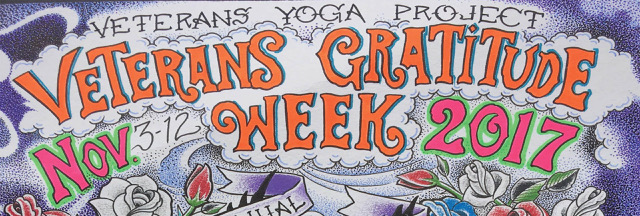 VETERANS YOGA PROJECT
VETERANS GRATITUDE
WEEK
NOV. 3-12
2017